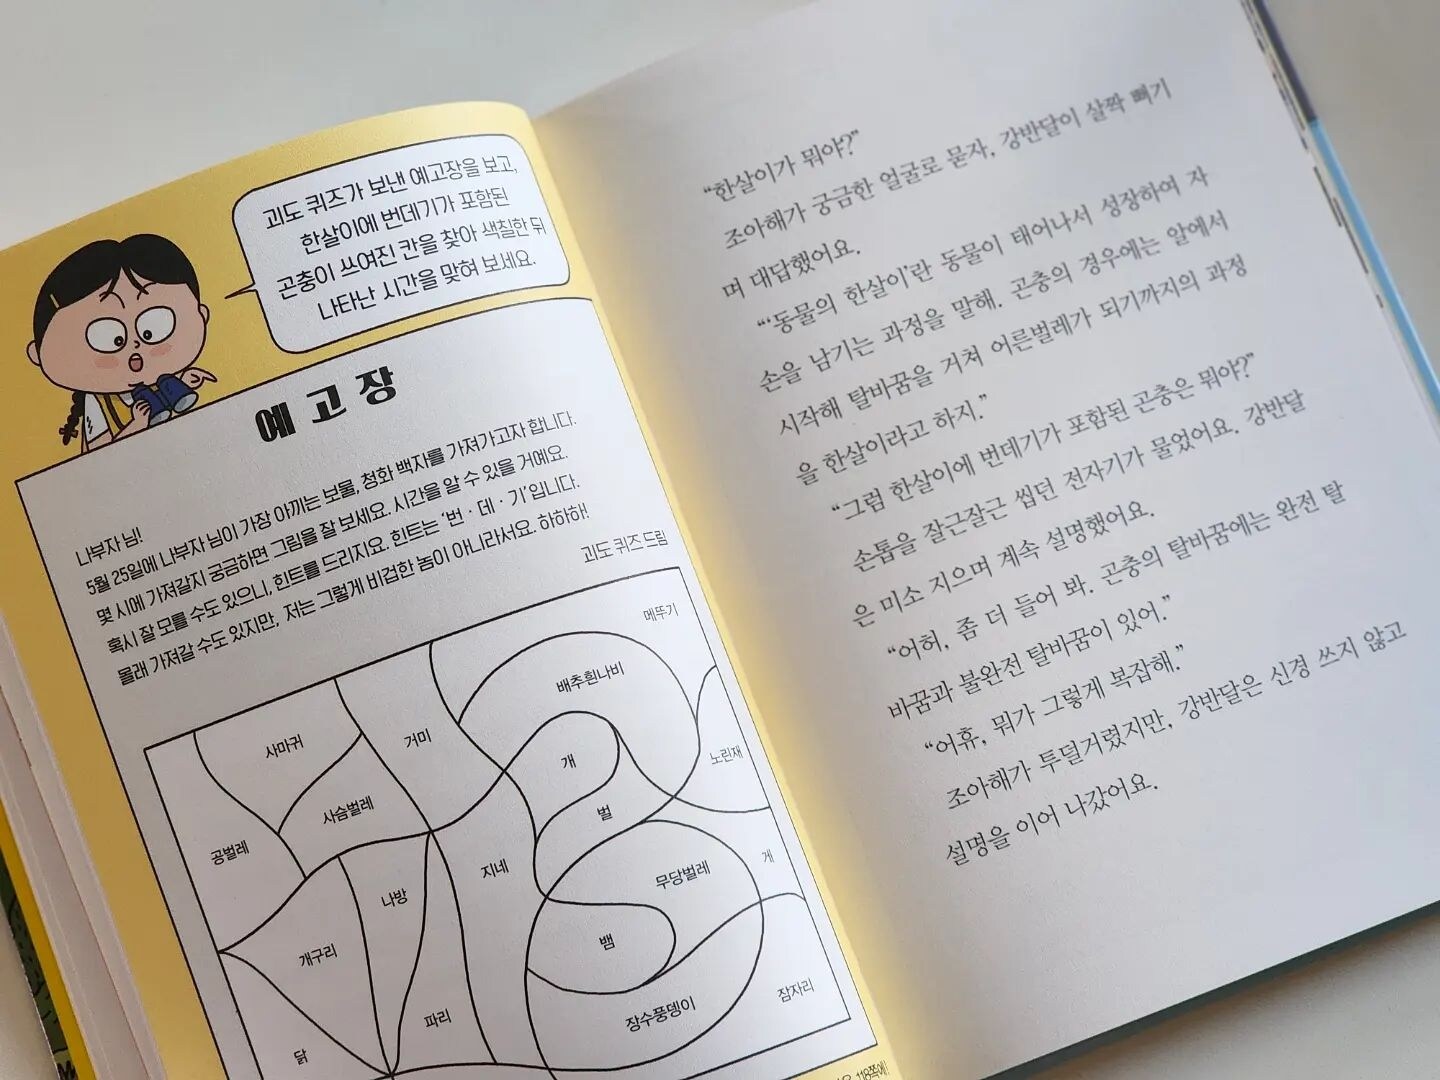 괴도 퀴즈가 보낸 예고장을 보고,
한살이에 번데기가 포함된
곤충이 쓰여진 칸을 찾아 색칠한 뒤
나타난 시간을 맞혀 보세요.
예고장
나부자 님!
5월 25일에 나부자 님이 가장 아끼는 보물, 청화 백자를 가져가고자 합니다.
몇 시에 가져갈지 궁금하면 그림을 잘 보세요. 시간을 알 수 있을 거예요.
혹시 잘 모를 수도 있으니, 힌트를 드리지요. 힌트는 '번·데·기'입니다.
몰래 가져갈 수도 있지만, 저는 그렇게 비겁한 놈이 아니라서요. 하하하!
괴도 퀴즈 드림
메뚜기
배추흰나비
사마귀
거미
개
노린재
사슴벌레
벌
공벌레
지네
무당벌레
게
나방
개구리
뱀
잠자리
파리
장수풍뎅이
닭
118쪽에!
"한살이가 뭐야?"
조아해가 궁금한 얼굴로 묻자, 강반달이 살짝 뻐기
며 대답했어요.
"'동물의 한살이'란 동물이 태어나서 성장하여 자
손을 남기는 과정을 말해. 곤충의 경우에는 알에서
시작해 탈바꿈을 거쳐 어른벌레가 되기까지의 과정
을 한살이라고 하지."
"그럼 한살이에 번데기가 포함된 곤충은 뭐야?"
손톱을 잘근잘근 씹던 전자기가 물었어요. 강반달
은 미소 지으며 계속 설명했어요.
"어허, 좀 더 들어 봐. 곤충의 탈바꿈에는 완전 탈
바꿈과 불완전 탈바꿈이 있어."
"어휴, 뭐가 그렇게 복잡해."
조아해가 투덜거렸지만, 강반달은 신경 쓰지 않고
설명을 이어 나갔어요.